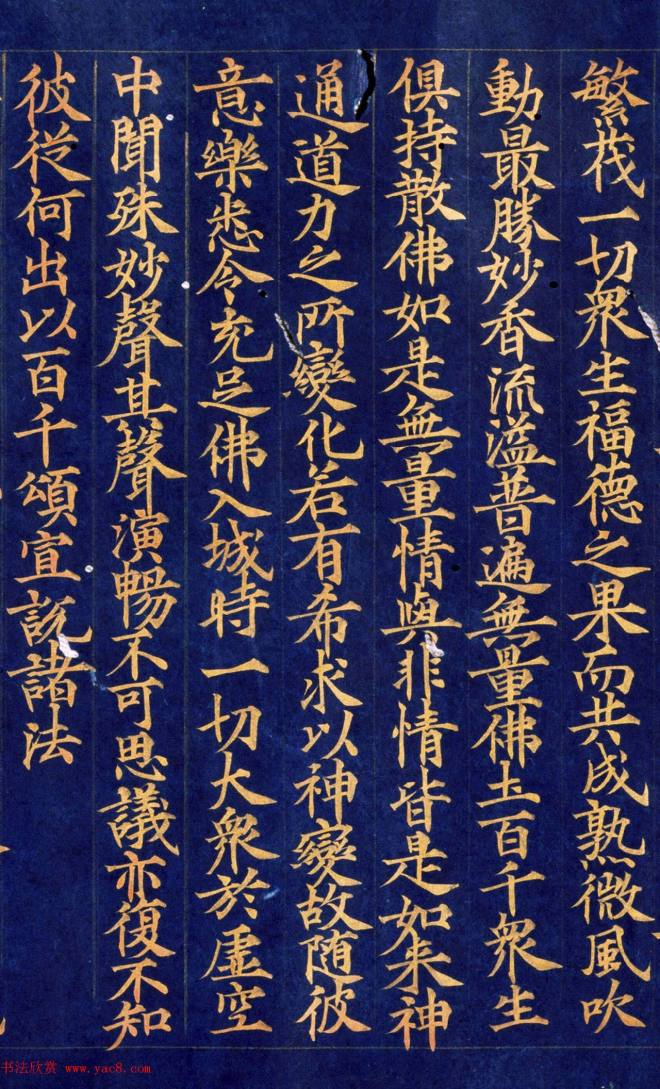 繁茂一切衆生福德之果而共成熟微風吹
動最勝妙香流溢普遍無量佛土百千衆生
俱持散佛如是無量情與非情皆是如来神
通道力之所變化若有希求以神變故随彼
意樂悉令充足佛入城時一切大衆於虚空
中聞殊妙聲其聲演暢不可思議亦復不知
彼従何出以百千頌宣説諸法
书法欣赏 www.yac8.com